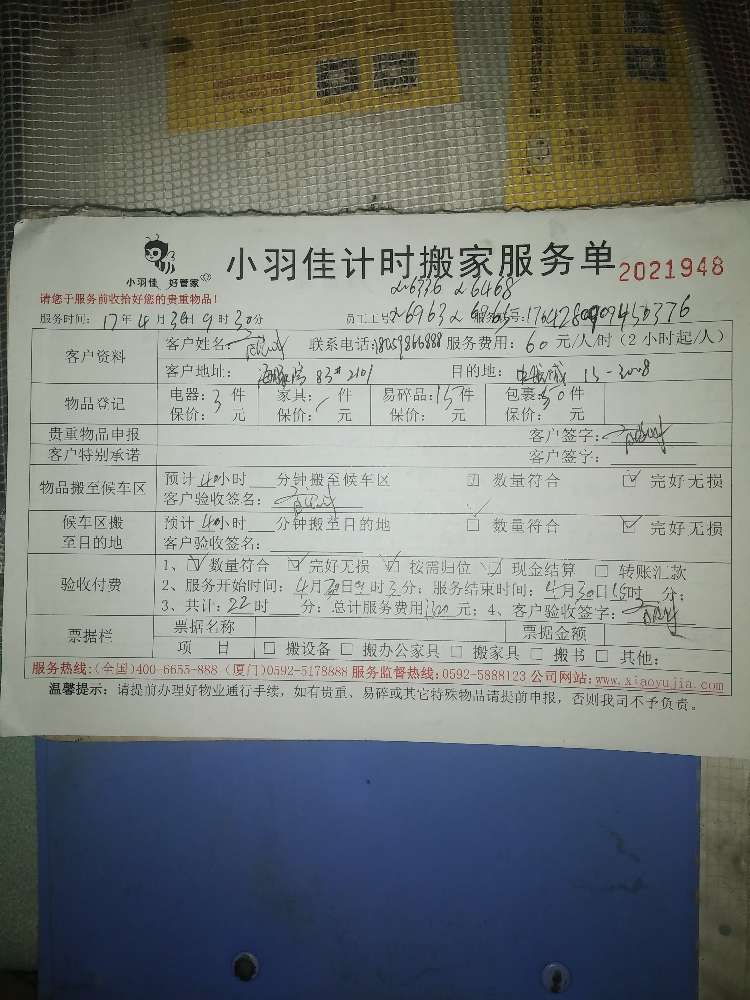 小羽佳 好管家
小羽佳计时搬家服务单 2021948
请您于服务前收拾好您的贵重物品！
26336 26468
服务时间：17年4月30日9时30分 员工工号： 26963
客户资料 客户姓名： 联系电话：18059866888 服务费用：60元/人/时（2小时起/人）
客户地址： 83#2101 目的地： 13-3008
物品登记 电器：3件 家具：件 易碎品：15件 包裹：50件
保价： 元 保价： 元 保价： 元 保价： 元
贵重物品申报 客户签字：
客户特别承诺 客户签字：
物品搬至候车区 预计 小时 分钟搬至候车区 ☑ 数量符合 ☑ 完好无损
客户验收签名：
候车区搬至目的地 预计 小时 分钟搬至目的地 ☐ 数量符合 ☑ 完好无损
客户验收签名：
验收付费 1、☑ 数量符合 ☑ 完好无损 ☑ 按需归位 ☑ 现金结算 ☐ 转账汇款
2、服务开始时间：4月30日 时 分；服务结束时间：4月30日15时 分；
3、共计：22时 分；总计服务费用 元；4、客户验收签字：
票据栏 票据名称 票据金额
项 目 ☐ 搬设备 ☐ 搬办公家具 ☐ 搬家具 ☐ 搬书 ☐ 其他：
服务热线：(全国)400-6655-888 (厦门)0592-5178888 服务监督热线：0592-5888123 公司网站：www.xiaoyujia.com
温馨提示：请提前办理好物业通行手续，如有贵重、易碎或其它特殊物品请提前申报，否则我司不予负责。